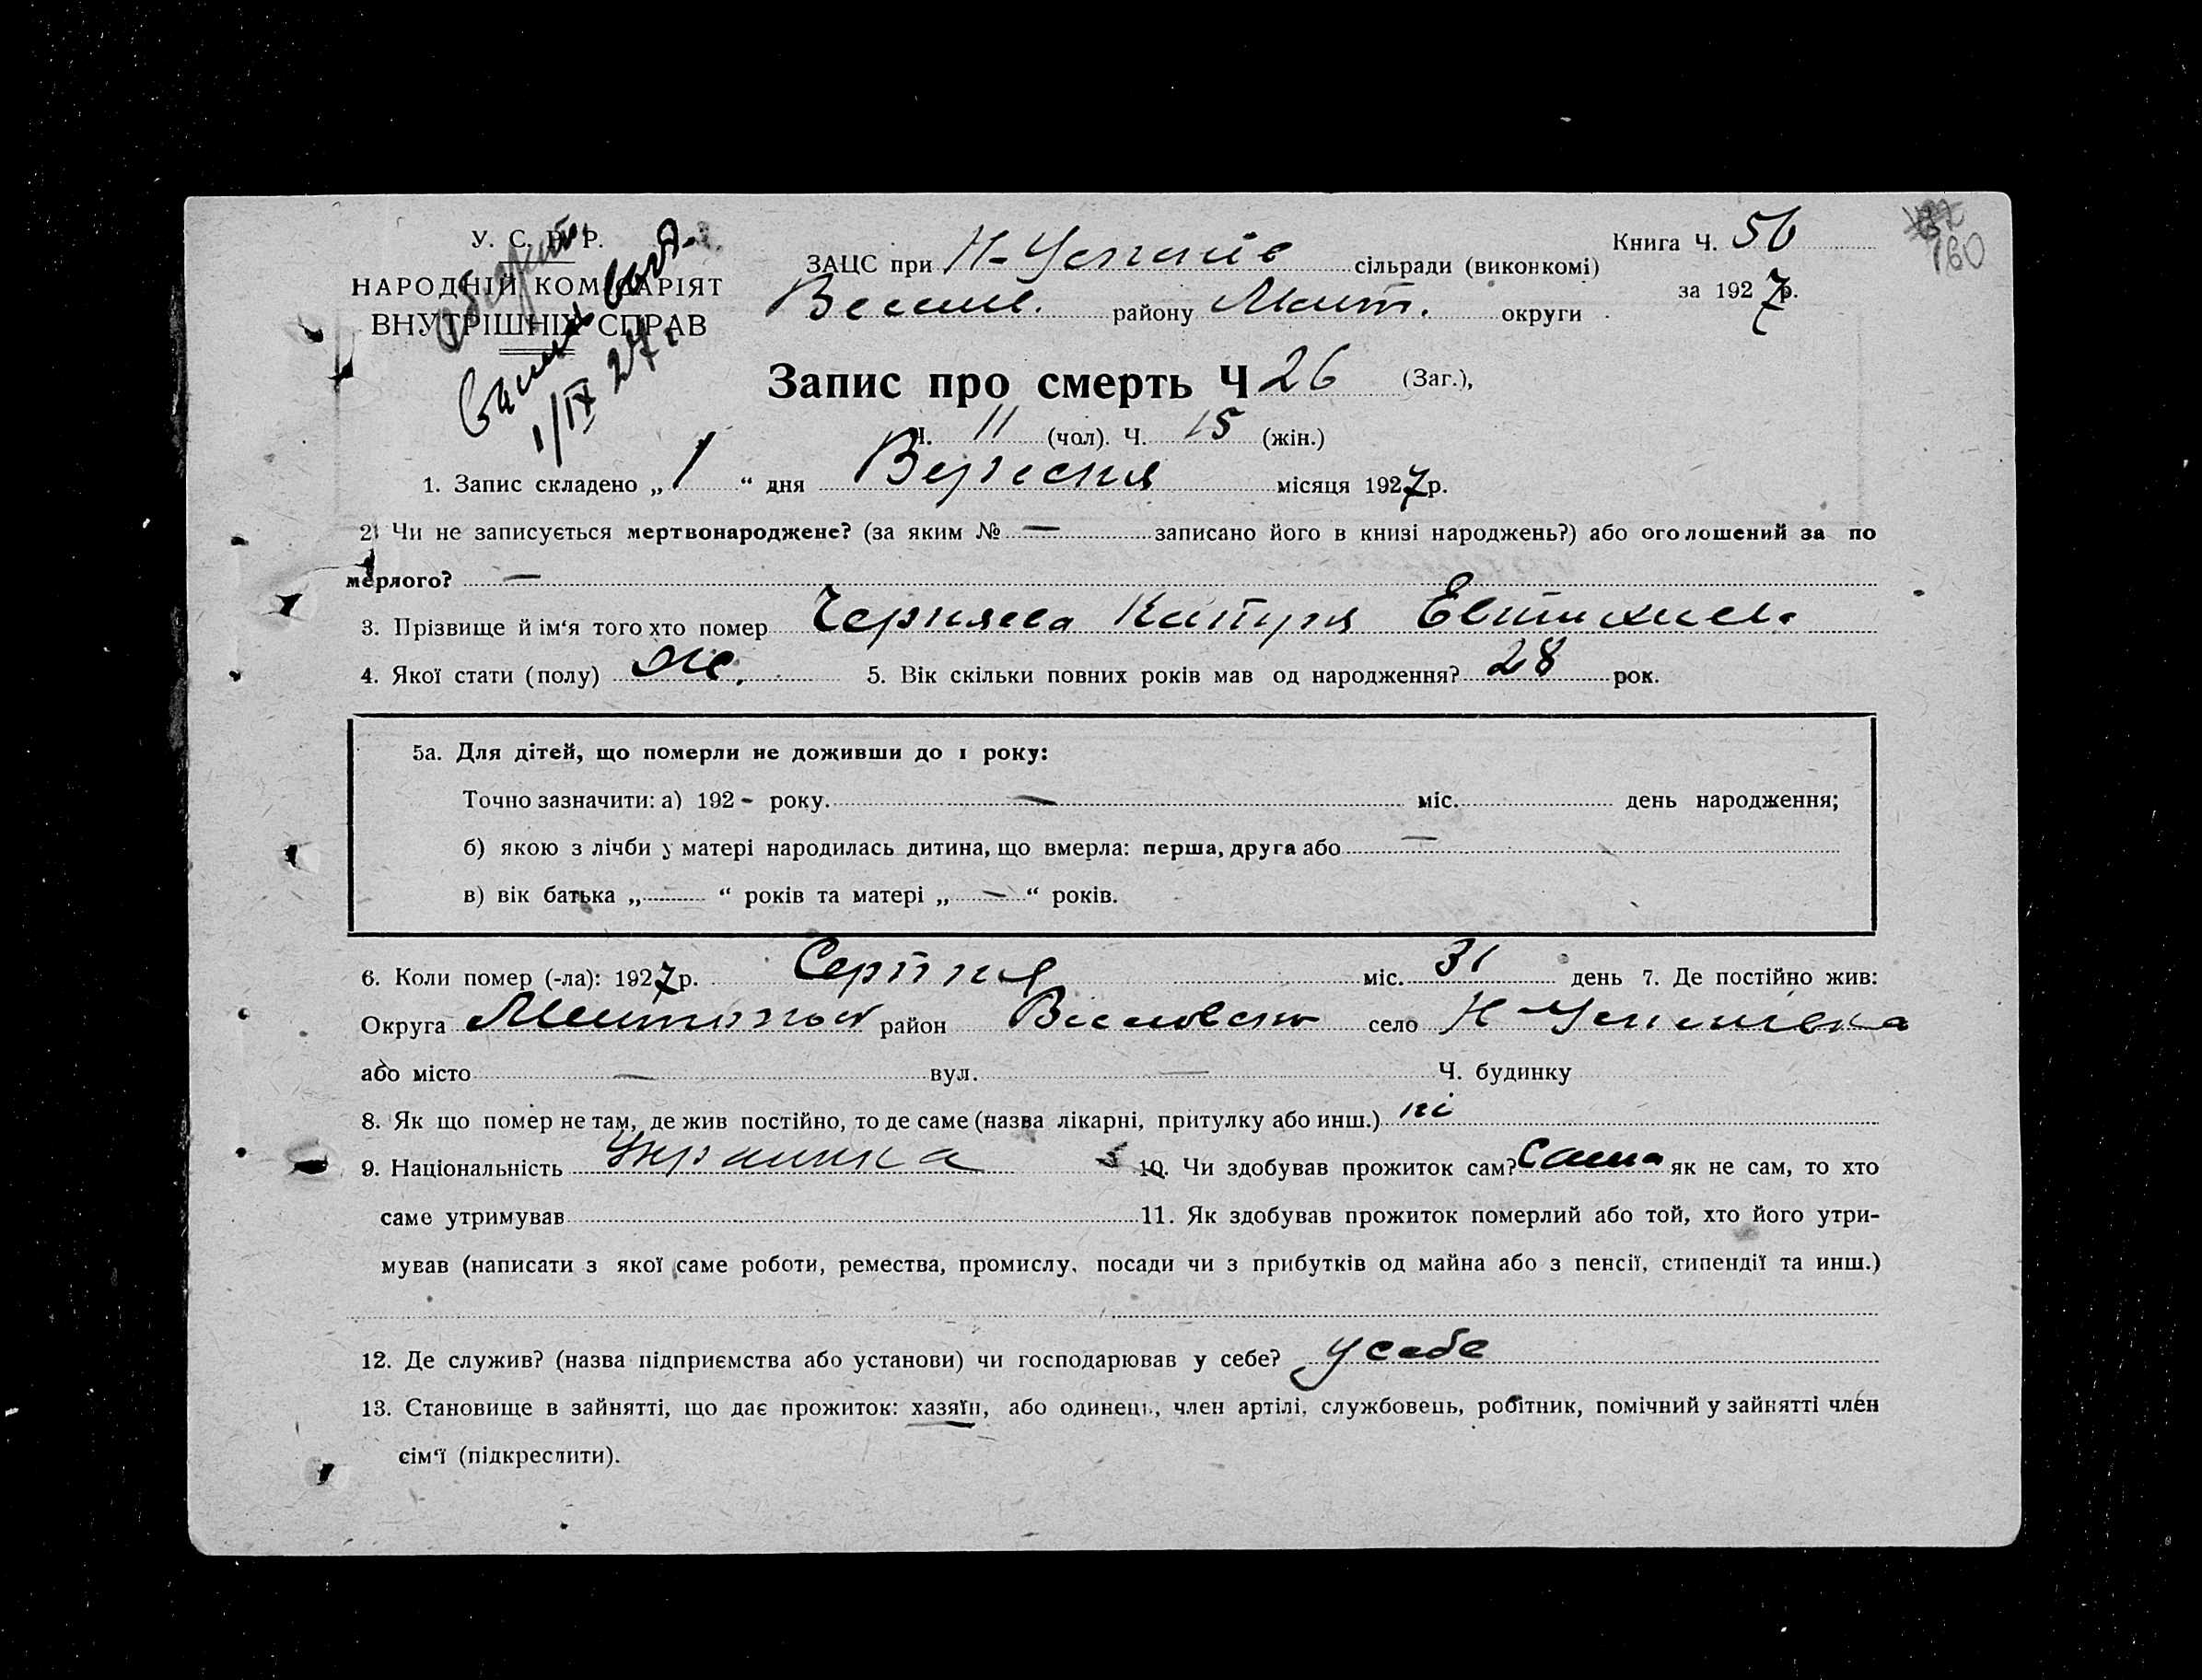 У. С. Р. Р.
НАРОДНІЙ КОМІСАРІЯТ
ВНУТРІШНІХ СПРАВ
1/IX 27.
160
Книга Ч. 56
за 1927р.
ЗАЦС при Н-Успенів сільради (виконкомі)
Весел. району Меліт. округи
Запис про смерть Ч 26 (Заг.),
Ч. 11 (чол). Ч. 15 (жін.)
1. Запис складено „ 1 “ дня Вересня місяця 1927р.
2. Чи не записується мертвонароджене? (за яким № — записано його в книзі народжень?) або оголошений за по
мерлого? —
3. Прізвище й ім‘я того хто помер Черняева
4. Якої стати (полу) Ж. 5. Вік скільки повних років мав од народження? 28 рок.
5а. Для дітей, що померли не доживши до 1 року:
Точно зазначити: а) 192 - року. — міс. день народження;
б) якою з лічби у матері народилась дитина, що вмерла: перша, друга або —
в) вік батька „ “ років та матері „ — “ років.
6. Коли помер (-ла): 1927р. Серпня міс. 31 день 7. Де постійно жив:
Округа район село Н-Успенівка
або місто — вул. — Ч. будинку
8. Як що помер не там, де жив постійно, то де саме (назва лікарні, притулку або инш.) ні
9. Національність Украинка 10. Чи здобував прожиток сам? Сама як не сам, то хто
саме утримував 11. Як здобував прожиток померлий або той, хто його утри-
мував (написати з якої саме роботи, ремества, промислу, посади чи з прибутків од майна або з пенсії, стипендії та инш.)
12. Де служив? (назва підприємства або установи) чи господарював у себе? у себе
13. Становище в зайнятті, що дає прожиток: хазяїн, або одинець, член артілі, службовець, робітник, помічний у зайнятті член
сім‘ї (підкреслити).